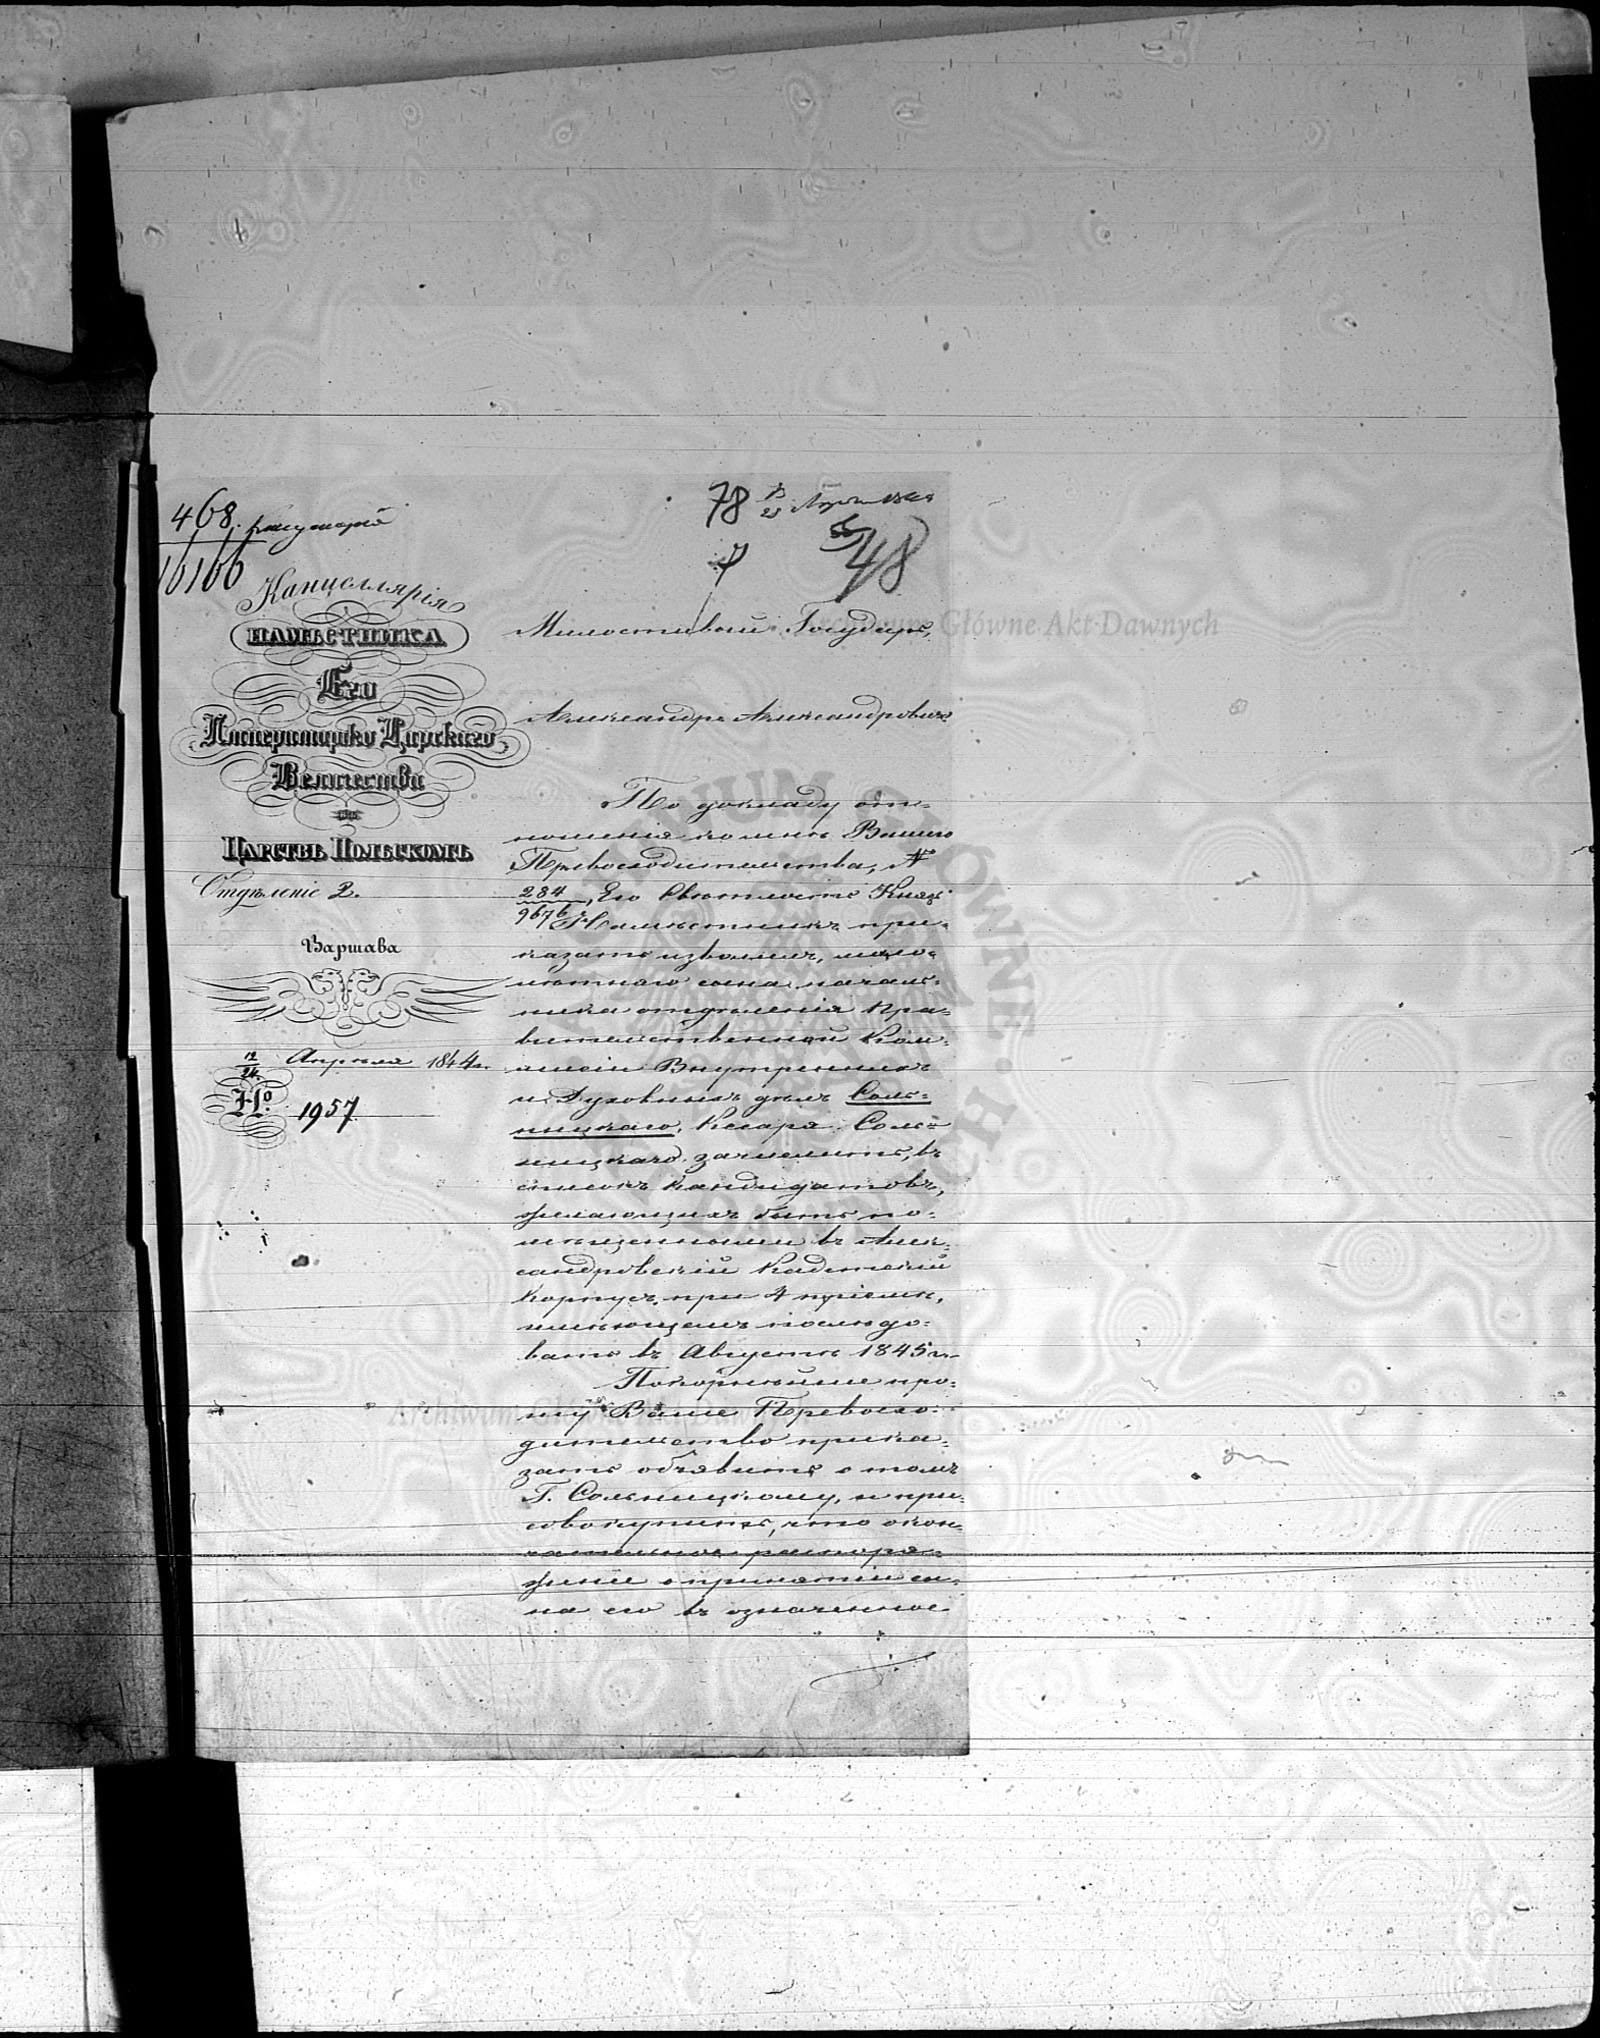 468.
16166
78 13/25 Апрѣля 1844
48
Канцеллярія
НАМѢСТНИКА
Его
Императорско Царскаго
Величества
въ
ЦАРСТВѢ ПОЛЬСКОМЪ
Отдѣленіе 2.
Варшава
12/24 Апрѣля 1844 г.
№ 1957
Милостивый Государь,
Александръ Александровичъ
По докладу от=
ношенія ко мнѣ Вашего
Превосходительства, №
284/9676, Его Свѣтлость Князь
Намѣстникъ при=
казать изволилъ, мало=
лѣтнаго сына началь=
ника отдѣленія Пра=
вительственной Ком=
мисіи Внутреннихъ
и Духовныхъ дѣлъ Соль=
ницкаго, Кесаря Соль=
ницкаго зачислить, въ
списокъ кандидатовъ,
желающихъ быть по=
мѣщенными въ Алек=
сандровскій Кадетскій
Корпусъ, при 4 пріемѣ,
имѣющемъ послѣдо=
вать въ Августѣ 1845 г.
Покорнѣйше про=
шу Ваше Превосхо=
дительство прика=
зать объявить о томъ
Г. Сольницкому, и при=
совокупить, что окон=
чательное распоря=
женіе о принятіи сы=
на его въ означенное
Archiwum Główne Akt Dawnych
Archiwum Główne Akt Dawnych